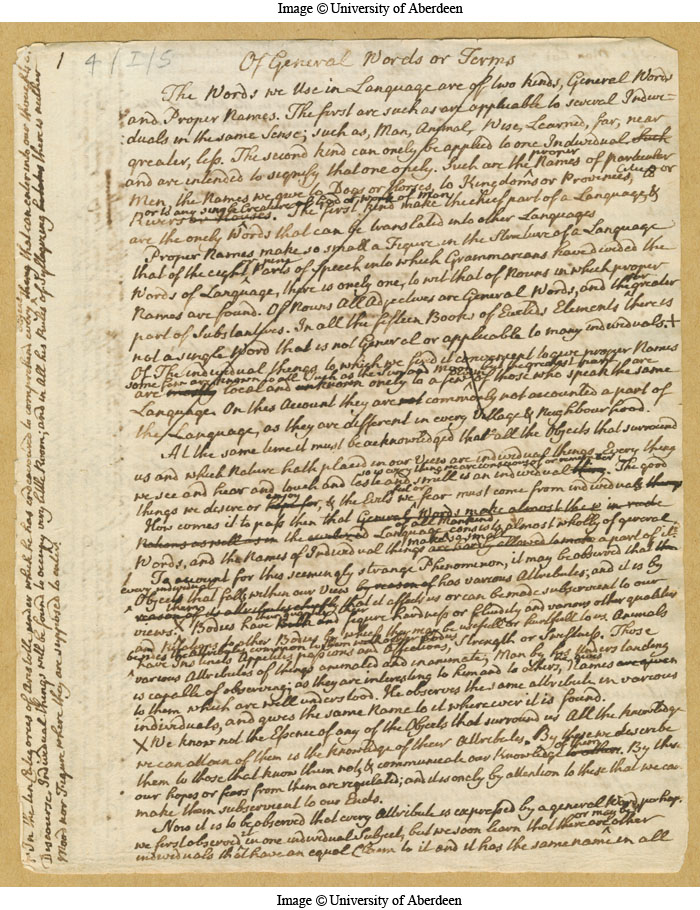 Image © University of Aberdeen
1 4/I/5 Of General Words or Terms
The Words we Use in Language are of two kinds, General Words
and Proper Names. The first are such as are applicable to several Indivi-
duals in the same Sense; such as, Man, Animal, Wise, Learned, far, near
greater, less. The second kind can onely be applied to one Individual Such
and are intended to signify that one onely. Such are the proper Names of particular
Men, the Names we give to Dogs or Horses, to Kingdoms or Provinces, Cities or
Rivers or to any single Creature of God or work of Man. The first kind make the chief part of a Language, &
are the onely Words that can be translated into other Languages
Proper Names make so small a Figure in the Structure of a Language
that of the eight Parts of Speech into which Grammarians have divided the
Words of Language, there is onely one, to wit that of Nouns in which proper
Names are found. Of Nouns All Adjectives are General Words, and the greater
part of Substantives. In all the fifteen Books of Euclids Elements there is
not a single Word that is not General or applicable to many individuals. X
Of The individual things to which we find it convenient to give proper Names
some few are known to all Such as the Sun and Moon the greatest part are
are local and known onely to a few of those who speak the same
Language. On this Account they are commonly not accounted a part of
the Language, as they are different in every Village & Neighbourhood.
At the same time it must be acknowledged that all the Objects that surround
us and which Nature hath placed in our View are individual things. Every thing
we see and hear and touch and taste and smell is an individual
so is every thing we are conscious of or remember The good
things we desire or enjoy, & the Evils we fear must come from individuals
How comes it to pass then that General Words make almost the
of all Mankind
Language consists almost wholly of general
Words, and the Names of Individual things make so small a part of it.
To account for this seemingly strange Phenomenon, it may be observed that
every individual
Objects that falls within our View has various Attributes; and it is by
them that it affects us or can be made subservient to our
views. Bodies have figure hardness or fluidity and various other qualities
by which they may be usefull or hurtfull to us Animals
have Instincts Appetites passions and Affections, Strength or Swiftness. Those
various Attributes of things animated and inanimate, Man by his Understanding
is capable of observing; as they are interesting to him and to others, he gives Names
to them which are well understood. He observes the same attribute in various
individuals, and gives the same Name to it where ever it is found.
X We know not the Essence of any of the Objects that surround us All the knowledge
we can attain of them is the knowledge of their Attributes. By these we describe
them to those that know them not, & communicate our Knowledge of them. By this
our hopes or fears from them are regulated; and it is onely by attention to these that we can
make them subservient to our Ends.
Now it is to be observed that every Attribute is expressed by a general Word perhaps
we first observed it in one individual Subject, but we soon learn that there are or may be other
individuals that have an equal Claim to it and it has the same name in all
In the ten Categories of Aristotle under which he has endeavoured to comprehend every thing that can enter into our thoughts or
Discourse, Individual things will be found to occupy very little Room; and in all his Rules of Syllogising there is neither
Mood nor Figure where they are supposed to enter.
Image © University of Aberdeen